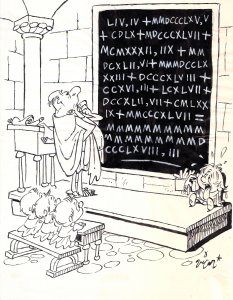 LIV, IV + MMDCCCLXV, V
+ CDLX + MDCCCXLVII +
MCMXXXII, IIX + MM
DCXLII, VI + MMMDCCLX
XXIII + DCCCXLVIII
+ CCXVI, III + LCXLVII +
DCCXLII, VII + CMLXX
IX + MMCCCXLVII =
MMMMMMMMM
MMMMMMMMD
CCCLXVIII, III